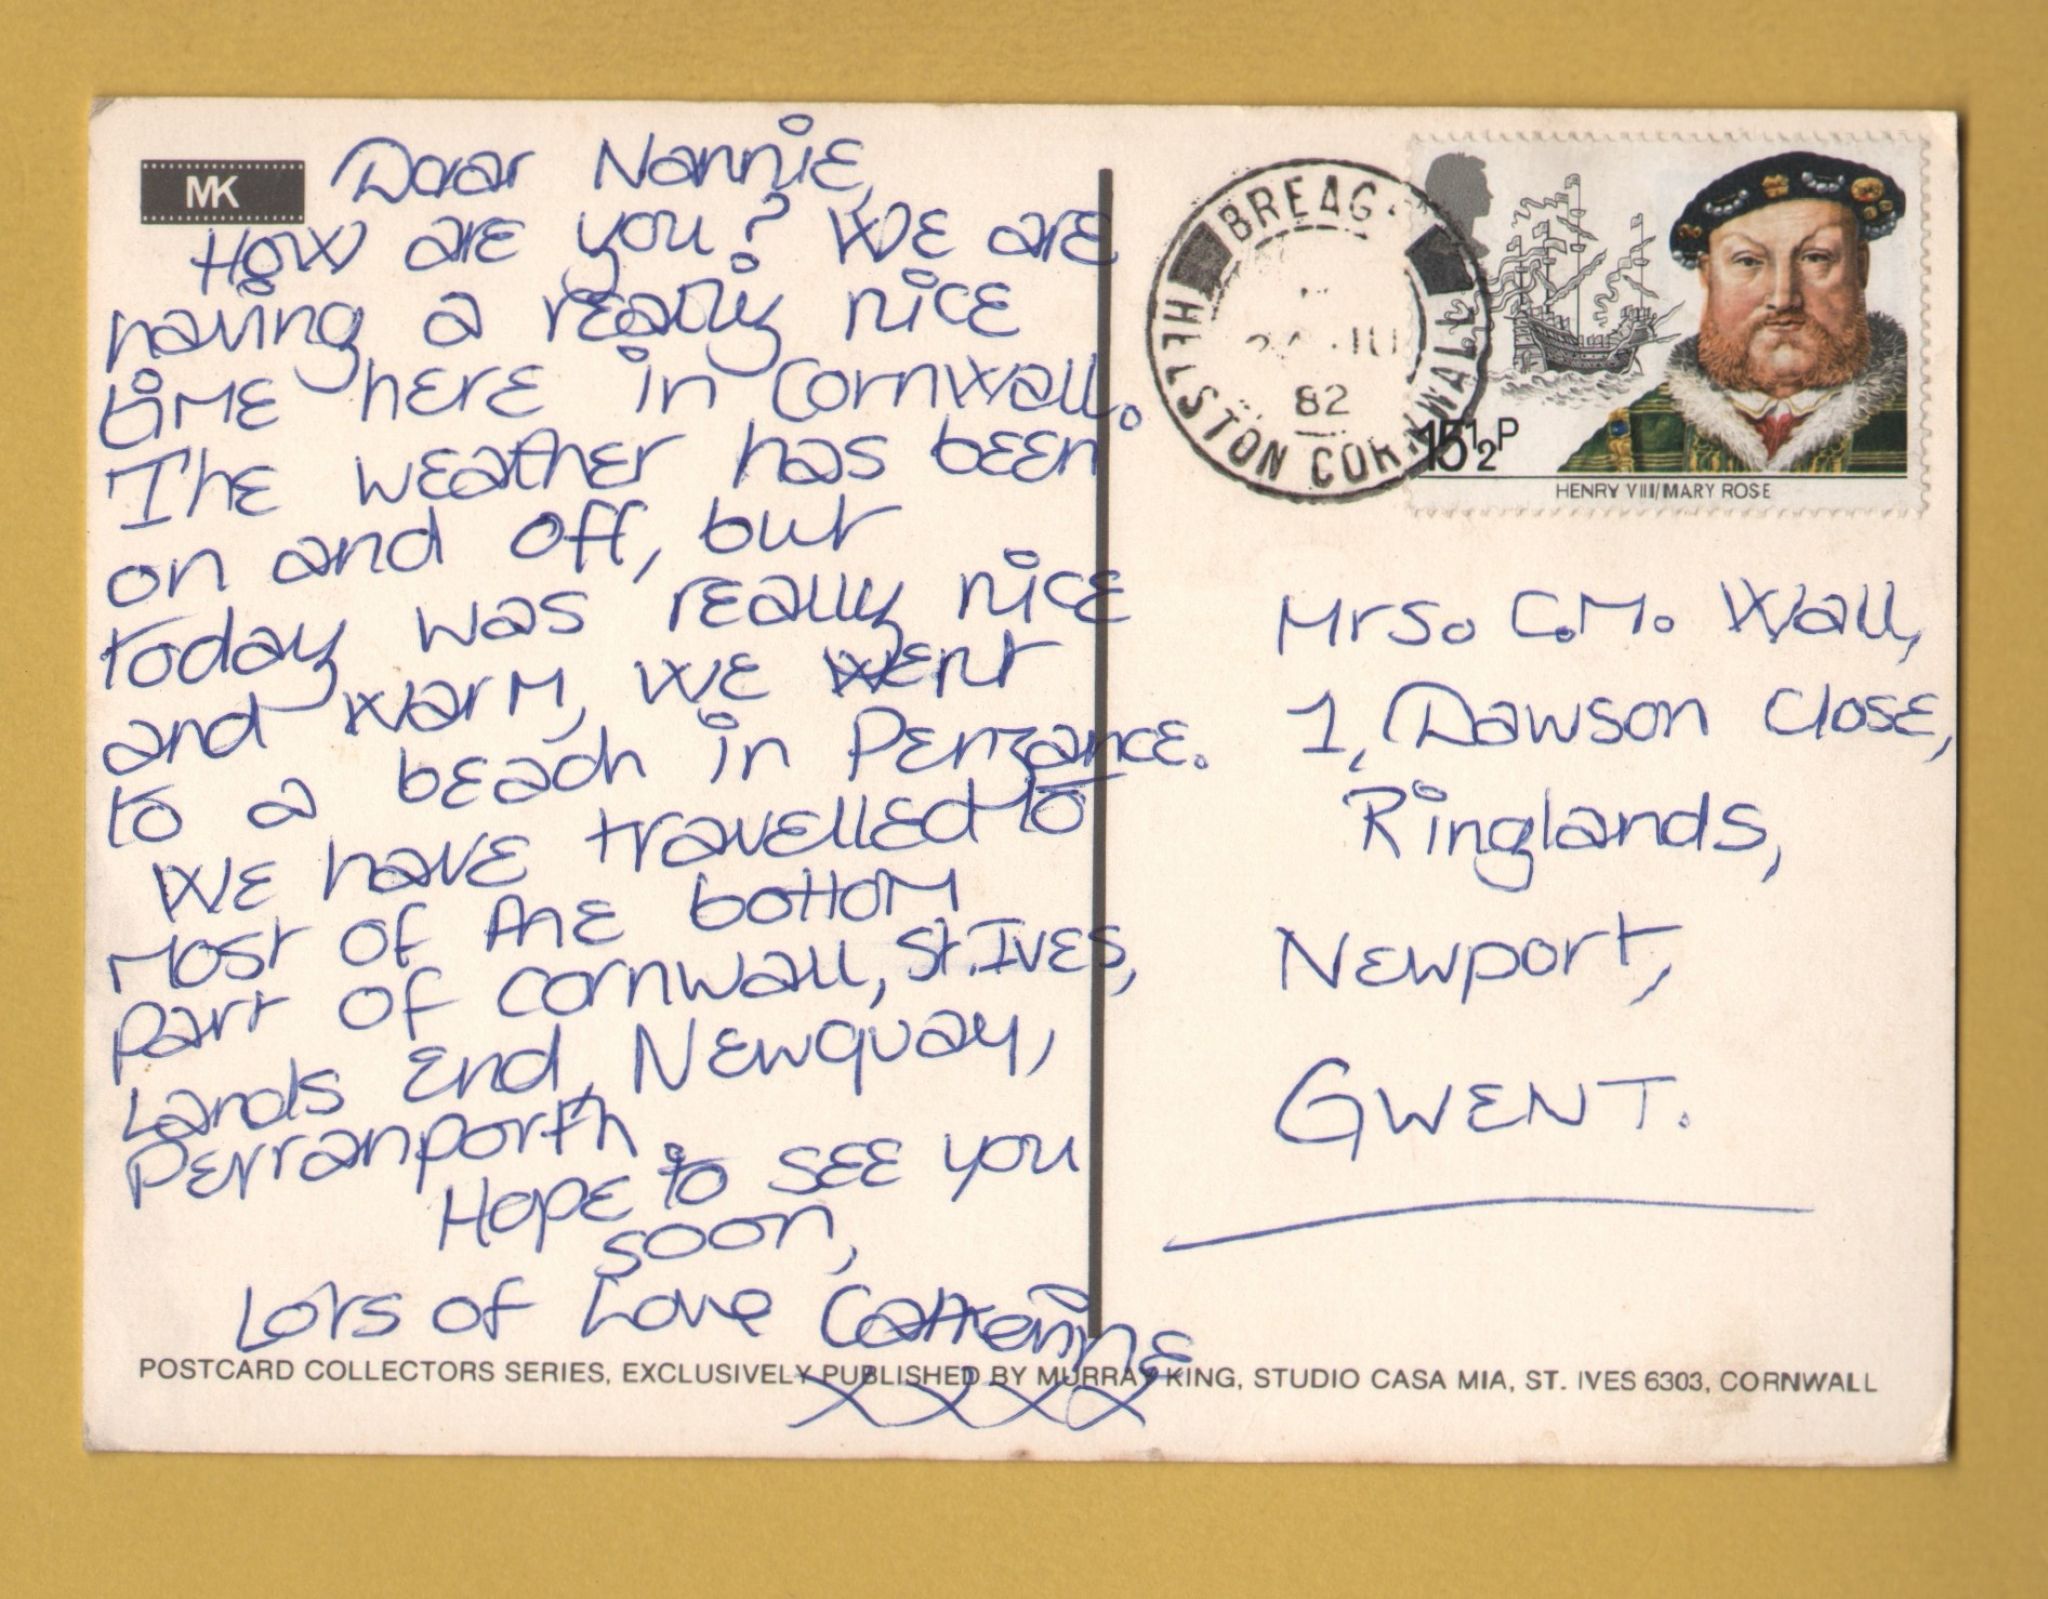 MK
Dear Nannie,
How are you? We are
having a really nice
time here in Cornwall.
The weather has been
on and off, but
today was really nice
and warm, we went
to a beach in Penzance.
We have travelled to
most of the bottom
part of Cornwall, St. Ives,
Lands End, Newquay,
Perranporth.
Hope to see you
soon,
Lots of Love Catherine
xxxx
POSTCARD COLLECTORS SERIES, EXCLUSIVELY PUBLISHED BY MURRAY KING, STUDIO CASA MIA, ST. IVES 6303, CORNWALL
BREAG
HELSTON CORNWALL
82
15½P
HENRY VIII/MARY ROSE
Mrs. C.M. Wall,
1, Dawson Close,
Ringlands,
Newport,
GWENT.